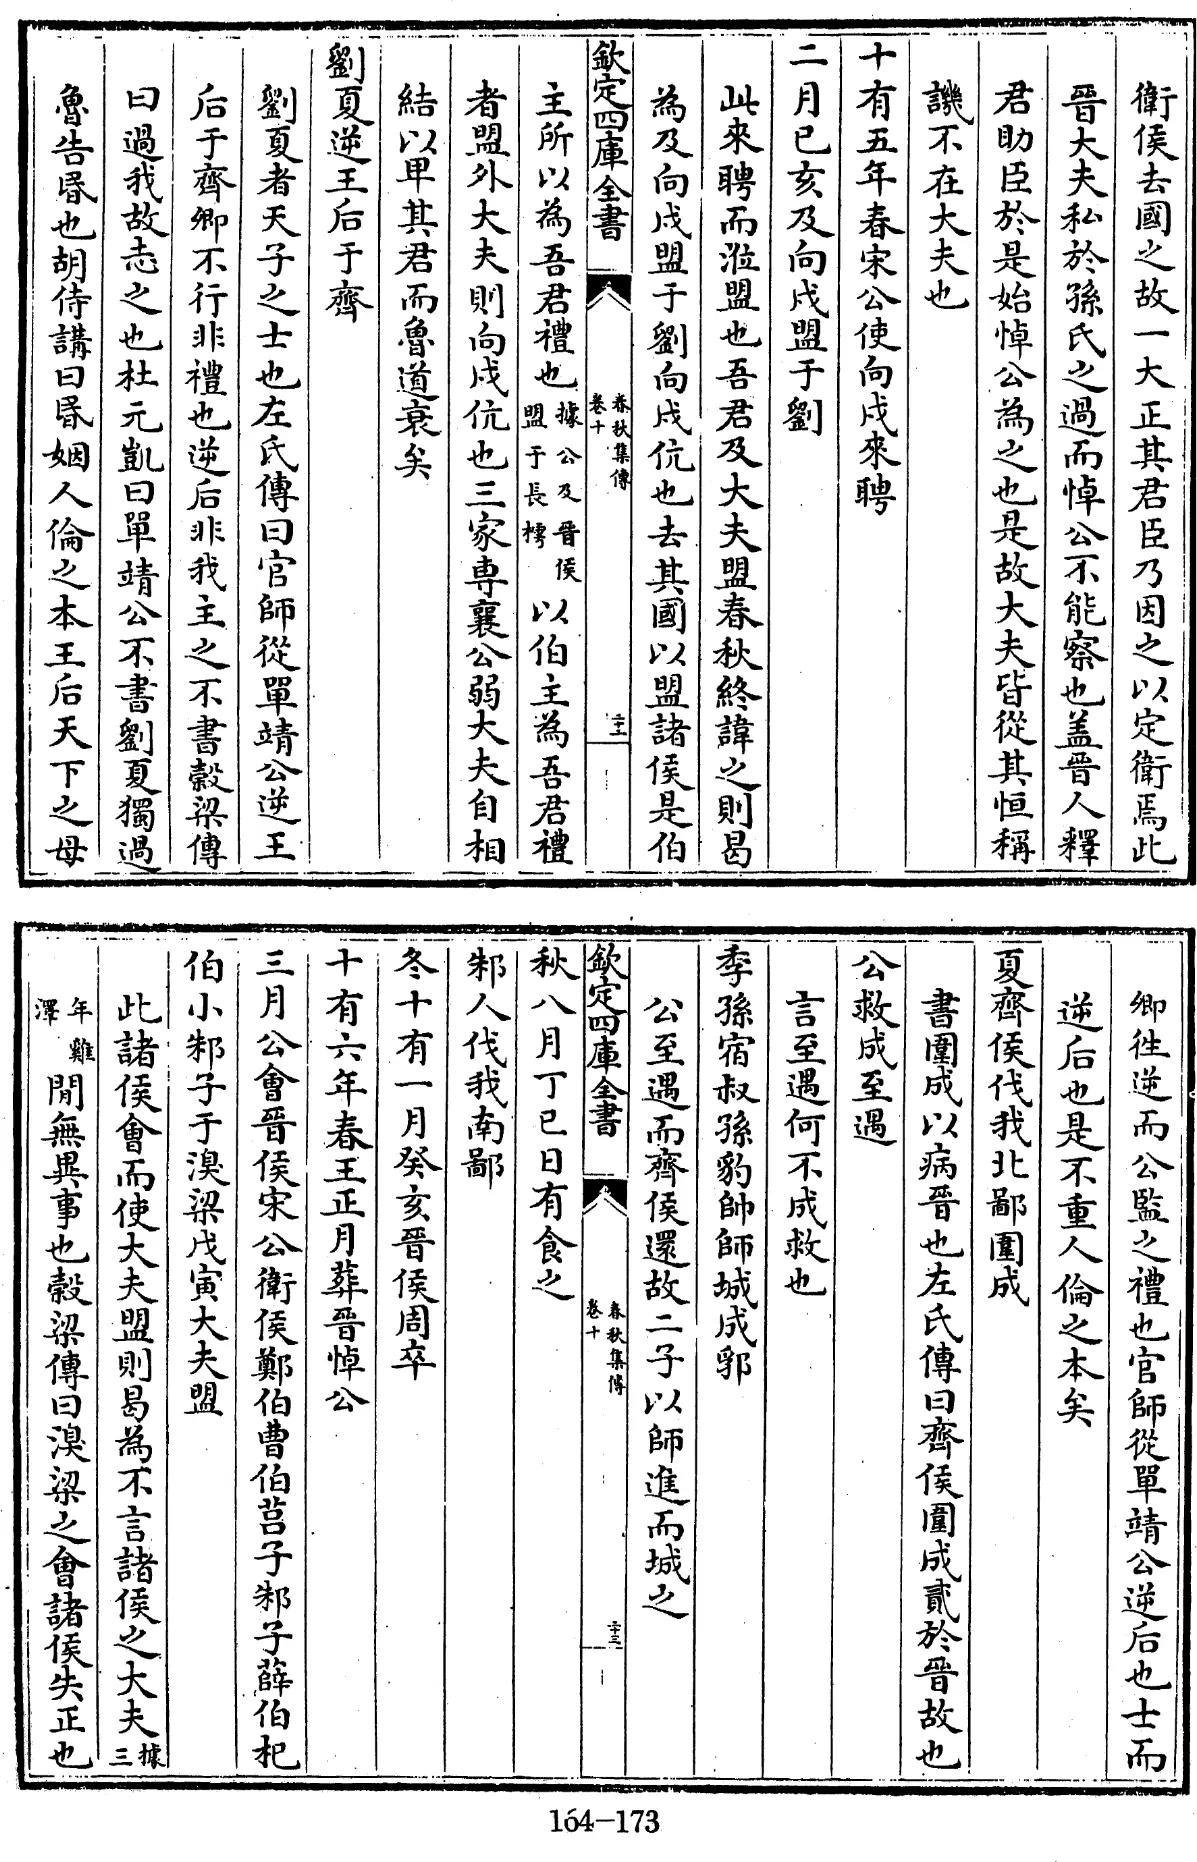 衛侯去國之故一大正其君臣乃因之以定衛焉此
晉大夫私於孫氏之過而悼公不能察也盖晉人釋
君助臣於是始悼公為之也是故大夫皆從其恒稱
譏不在大夫也
十有五年春宋公使向戍來聘
二月己亥及向戍盟于劉
此來聘而涖盟也吾君及大夫盟春秋終諱之則曷
為及向戍盟于劉向戍伉也去其國以盟諸侯是伯
欽定四庫全書
春秋集傳
卷十
二十二
主所以為吾君禮也據公及晉侯盟于長樗以伯主為吾君禮
者盟外大夫則向戍伉也三家専襄公弱大夫自相
結以卑其君而魯道衰矣
劉夏逆王后于齊
劉夏者天子之士也左氏傳曰官師從單靖公逆王
后于齊卿不行非禮也逆后非我主之不書穀梁傳
曰過我故志之也杜元凱曰單靖公不書劉夏獨過
魯告昬也胡侍講曰昬姻人倫之本王后天下之母
卿徃逆而公監之禮也官師從單靖公逆后也士而
逆后也是不重人倫之本矣
夏齊侯伐我北鄙圍成
書圍成以病晉也左氏傳曰齊侯圍成貳於晉故也
公救成至遇
言至遇何不成救也
季孫宿叔孫豹帥師城成郛
公至遇而齊侯還故二子以師進而城之
欽定四庫全書
春秋集傳
卷十
二十三
秋八月丁巳日有食之
邾人伐我南鄙
冬十有一月癸亥晉侯周卒
十有六年春王正月葬晉悼公
三月公會晉侯宋公衛侯鄭伯曹伯莒子邾子薛伯杞
伯小邾子于溴梁戊寅大夫盟
此諸侯會而使大夫盟則曷為不言諸侯之大夫據三
年雞澤閒無異事也穀梁傳曰溴梁之會諸侯失正也
164-173